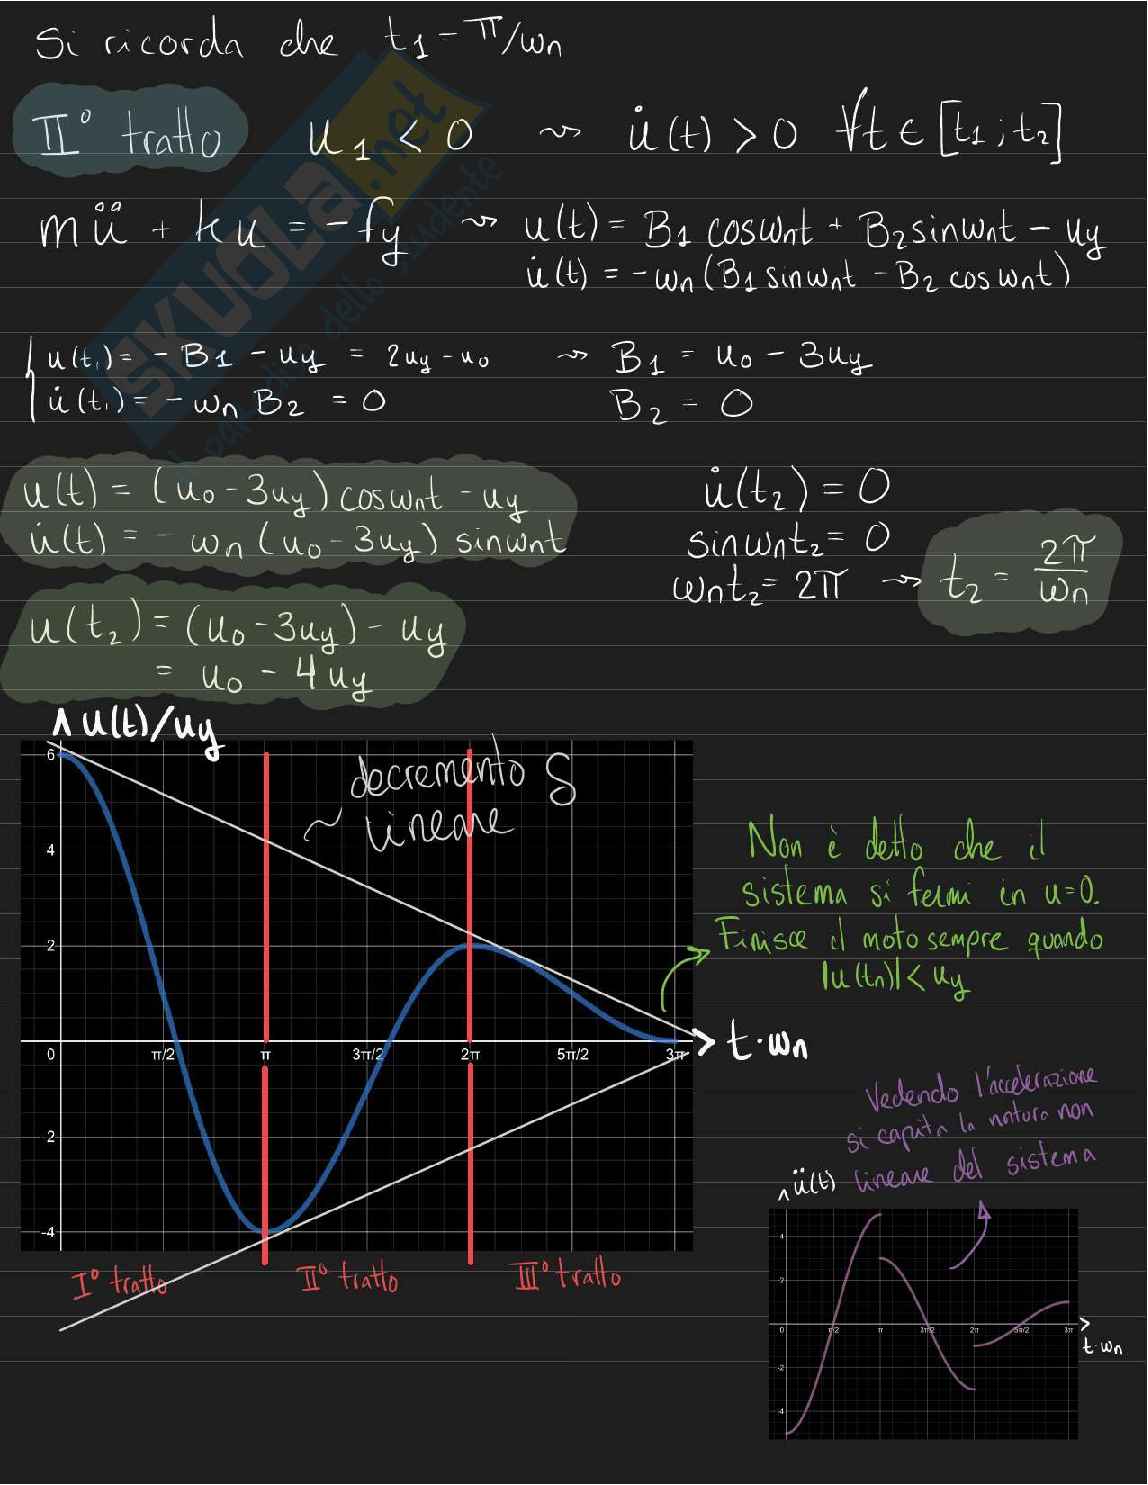 Si ricorda che t₁ - π/ωn
II° tratto u₁ < 0 ⤳ u̇(t) > 0 ∀t ∈ [t₁ ; t₂]
mü + ku = -fy ⤳ u(t) = B₁ cosωnt + B₂ sinωnt - uy
u̇(t) = -ωn (B₁ sinωnt - B₂ cosωnt)
{ u(t₁) = - B₁ - uy = 2uy - u₀ ⤳ B₁ = u₀ - 3uy
u̇(t₁) = - ωn B₂ = 0 B₂ - 0
u(t) = (u₀ - 3uy) cosωnt - uy
u̇(t) = - ωn (u₀ - 3uy) sinωnt
u̇(t₂) = 0
sinωnt₂ = 0
ωnt₂ = 2π ⤳ t₂ = 2π/ωn
u(t₂) = (u₀ - 3uy) - uy
= u₀ - 4uy
u(t)/uy
decremento δ
lineare
6
4
2
0 π/2 π 3π/2 2π 5π/2 3π
t·ωn
-2
-4
I° tratto II° tratto III° tratto
Non è detto che il
sistema si fermi in u=0.
Finisce il moto sempre quando
|u(tn)| < uy
Vedendo l'accelerazione
si capita la natura non
lineare del sistema
ü(t)
4
2
0 π/2 π 3π/2 2π 5π/2 3π
t·ωn
-2
-4
SKUOLA.net